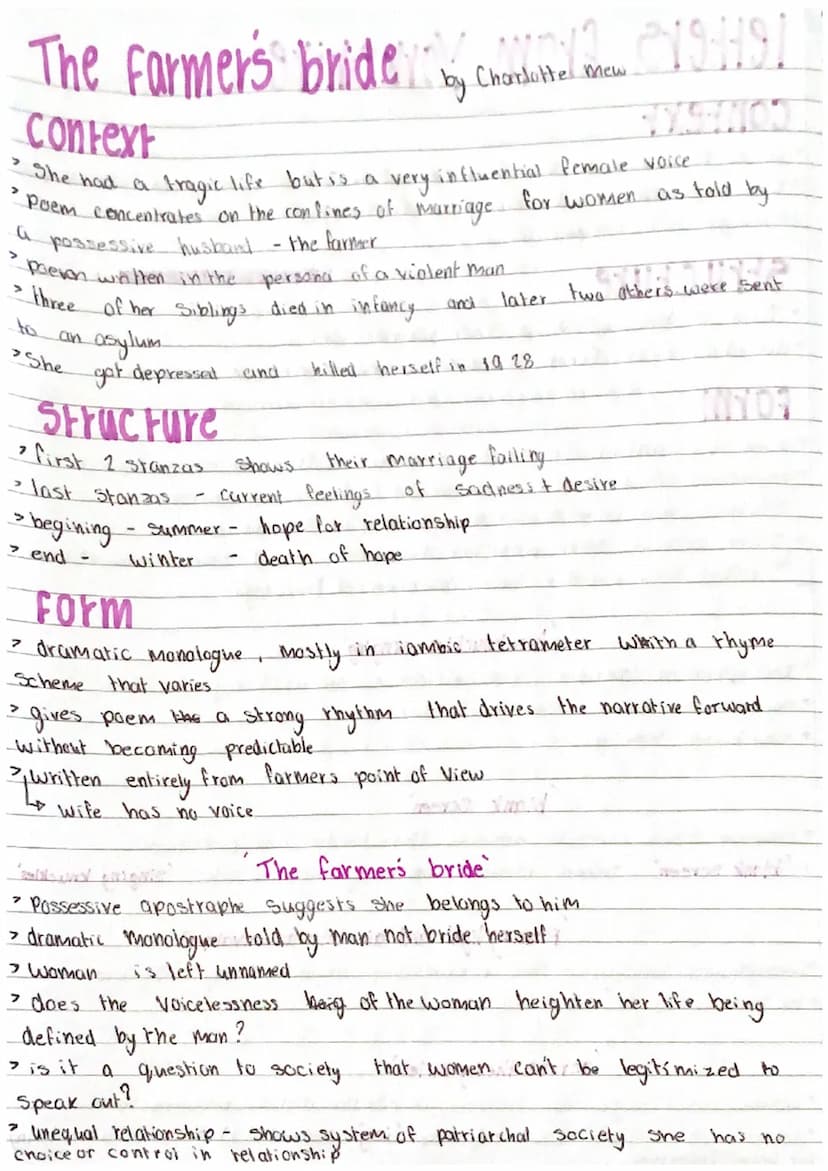 The Farmer's bride by Charlotte Mew
Context
> She had a tragic life but is a very influential female voice
> Poem concentrates on the confines of marriage for women as told by
a possessive husband - the farmer
> poem written in the persona of a violent man
> three of her siblings died in infancy and later two others were sent
to an asylum
> She got depressed and killed herself in 1928
Structure
> first 2 stanzas shows their marriage failing
> last stanzas - current feelings of sadness + desire
> begining - summer - hope for relationship
> end - winter - death of hope
Form
> dramatic monologue, mostly in iambic tetrameter with a rhyme
scheme that varies
> gives poem the a strong rhythm that drives the narrative forward
without becoming predictable
> written entirely from farmers point of view
↳ wife has no voice
'The farmer's bride'
> Possessive apostraphe suggests she belongs to him
> dramatic monologue told by man not bride herself
> woman is left unnamed
> does the voicelessness of the woman heighten her life being
defined by the man?
> is it a question to society that women can't be legitimized to
speak out?
> unequal relationship - shows system of patriarchal society she has no
choice or control in relationship